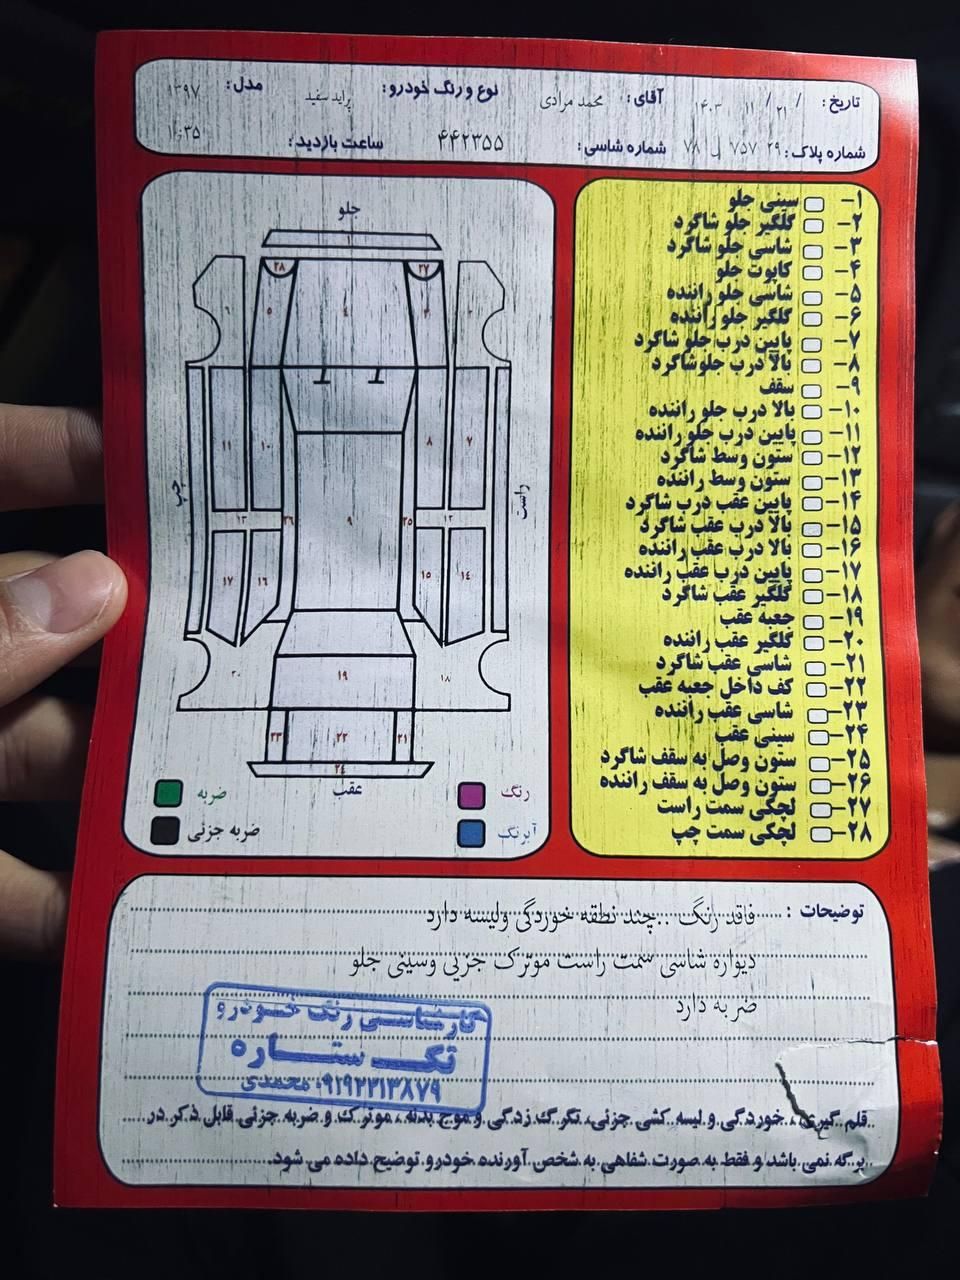 تاریخ: ۱۴۰۳ / ۱۱ / ۲۱ آقای: محمد مرادی نوع و رنگ خودرو: پراید سفید مدل: ۱۳۹۷
شماره پلاک: ۲۹ ۷۵۷ ۷۸ شماره شاسی: ۴۴۲۳۵۵ ساعت بازدید:
۱- سینی جلو
۲- گلگیر جلو شاگرد
۳- شاسی جلو شاگرد
۴- کاپوت جلو
۵- شاسی جلو راننده
۶- گلگیر جلو راننده
۷- پایین درب جلو شاگرد
۸- بالا درب جلو شاگرد
۹- سقف
۱۰- بالا درب جلو راننده
۱۱- پایین درب جلو راننده
۱۲- ستون وسط شاگرد
۱۳- ستون وسط راننده
۱۴- پایین عقب درب شاگرد
۱۵- بالا درب عقب شاگرد
۱۶- بالا درب عقب راننده
۱۷- پایین درب عقب راننده
۱۸- گلگیر عقب شاگرد
۱۹- جعبه عقب
۲۰- گلگیر عقب راننده
۲۱- شاسی عقب شاگرد
۲۲- کف داخل جعبه عقب
۲۳- شاسی عقب راننده
۲۴- سینی عقب
۲۵- ستون وصل به سقف شاگرد
۲۶- ستون وصل به سقف راننده
۲۷- لچکی سمت راست
۲۸- لچکی سمت چپ
جلو
۱
۲۷ ۲۸
۲ ۳ ۴ ۵ ۶
۷ ۸ ۱۰ ۱۱
راست چپ
۱۲ ۲۵ ۹ ۲۶ ۱۳
۱۴ ۱۵ ۱۶ ۱۷
۱۸ ۱۹ ۲۰
۲۱ ۲۲ ۲۳
۲۴
عقب
رنگ ضربه
آبرنگ ضربه جزئی
توضیحات : فاقد رنگ ..چند نطقه خوردگی ولیسه دارد
دیواره شاسی سمت راست موترک جزیی وسینی جلو
ضربه دارد
کارشناسی رنگ خودرو
تک ستاره
۰۹۱۹۲۲۱۳۸۷۹ محمدی
قلم گیری، خوردگی و لیسه کشی جزئی، تگرگ زدگی و موج بدنه، موترک و ضربه جزئی قابل ذکر در
برگه نمی باشد و فقط به صورت شفاهی به شخص آورنده خودرو توضیح داده می شود.